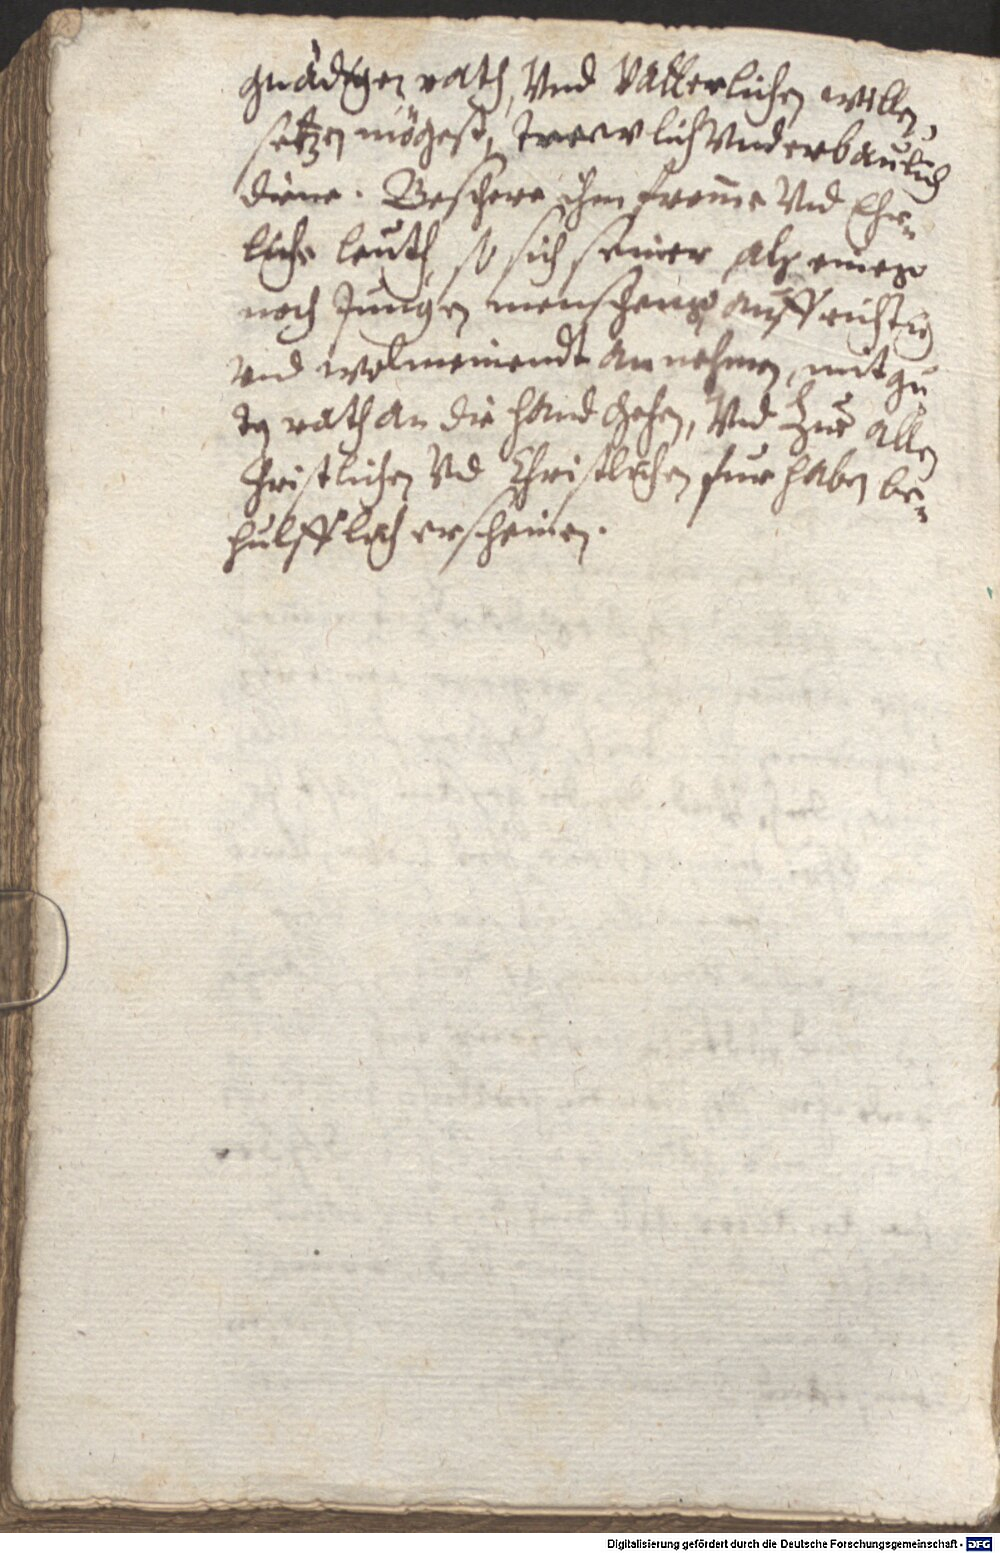 gnädigen rath, Vnd Vätterlichen willen,
setzen mögest, trewlich Vnd erbaulich
diene. Beschere ihm fromme Vnd Ehr=
liche leuth, so sich seiner alß eines
noch Jungen menschens auffrichtig
vnd wolmeinendt annehmen, mit gu
tē rath an die hand gehen, Vnd Zue allen
Christlichen Vnd Christlichen fürhaben be=
hülfflich erscheinen.
Digitalisierung gefördert durch die Deutsche Forschungsgemeinschaft - DFG